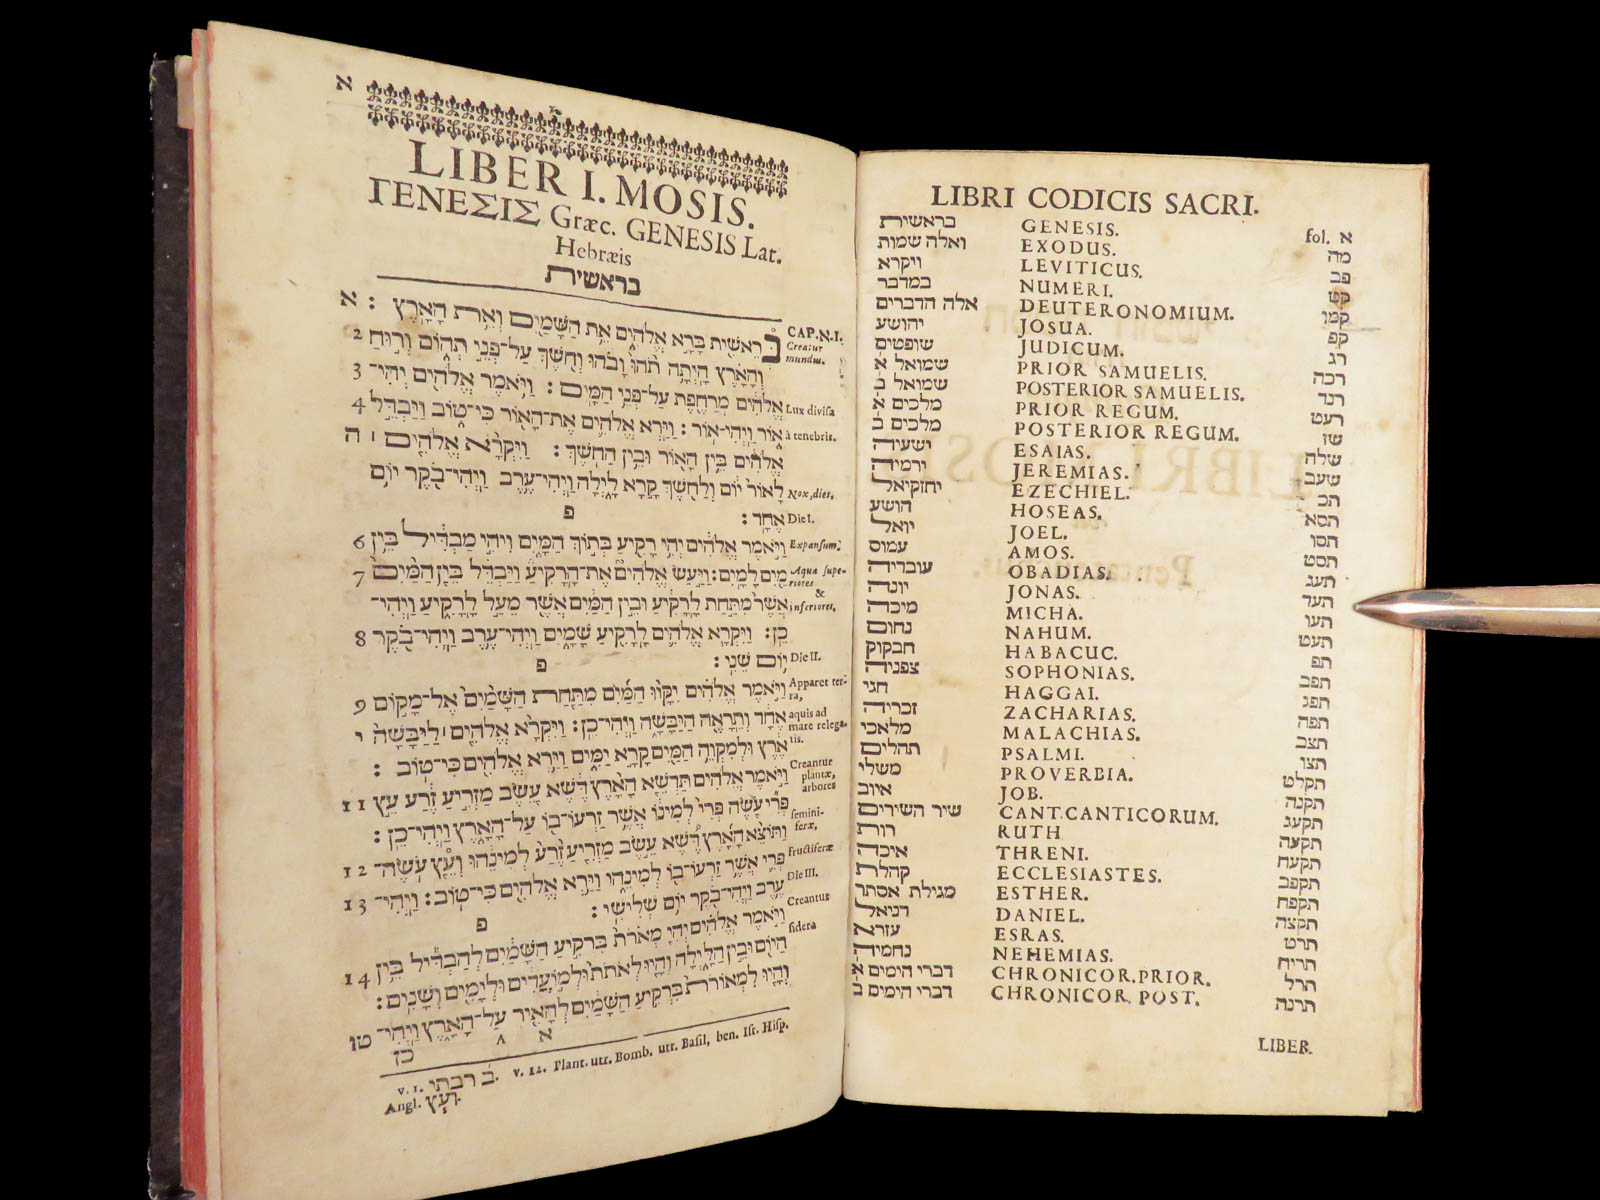 LIBRI CODICIS SACRI.
בראשית GENESIS. fol. א
ואלה שמות EXODUS. מה
ויקרא LEVITICUS. פב
במדבר NUMERI. קט
אלה הדברים DEUTERONOMIUM. קמו
יהושע JOSUA. קפ
שופטים JUDICUM. רג
שמואל א PRIOR SAMUELIS. רכה
שמואל ב POSTERIOR SAMUELIS. רנד
מלכים א PRIOR REGUM. רעט
מלכים ב POSTERIOR REGUM. שז
ישעיה ESAIAS. שלה
ירמיה JEREMIAS. שעב
יחזקיאל EZECHIEL. תכ
הושע HOSEAS. תסא
יואל JOEL. תסו
עמוס AMOS. תסט
עובדיה OBADIAS. תעג
יונה JONAS. תעד
מיכה MICHA. תעו
נחום NAHUM. תעט
חבקוק HABACUC. תפ
צפניה SOPHONIAS. תפב
חגי HAGGAI. תפג
זכריה ZACHARIAS. תפה
מלאכי MALACHIAS. תצב
תהלים PSALMI. תצו
משלי PROVERBIA. תקלט
איוב JOB. תקנה
שיר השירים CANT.CANTICORUM. תקעג
רות RUTH תקעה
איכה THRENI. תקעח
קהלת ECCLESIASTES. תקפב
מגילת אסתר ESTHER. תקפח
דניאל DANIEL. תקצה
עזרא ESRAS. תרט
נחמיה NEHEMIAS. תריח
דברי הימים א CHRONICOR.PRIOR. תרל
דברי הימים ב CHRONICOR. POST. תרנה
LIBER.
א
LIBER I. MOSIS.
ΓΕΝΕΣΙΣ Græc. GENESIS Lat.
Hebræis
בראשית
CAP.N.I.
בְּרֵאשִׁית בָּרָא אֱלֹהִים אֵת הַשָּׁמַיִם וְאֵת הָאָרֶץ : א
Creatur
mundus.
וְהָאָרֶץ הָיְתָה תֹהוּ וָבֹהוּ וְחֹשֶׁךְ עַל־פְּנֵי תְהוֹם וְרוּחַ 2
אֱלֹהִים מְרַחֶפֶת עַל־פְּנֵי הַמָּיִם : וַיֹּאמֶר אֱלֹהִים יְהִי־ 3
Lux divisa
אוֹר וַיְהִי־אוֹר : וַיַּרְא אֱלֹהִים אֶת־הָאוֹר כִּי־טוֹב וַיַּבְדֵּל 4
à tenebris.
אֱלֹהִים בֵּין הָאוֹר וּבֵין הַחֹשֶׁךְ : וַיִּקְרָא אֱלֹהִים ׀ ה
לָאוֹר יוֹם וְלַחֹשֶׁךְ קָרָא לָיְלָה וַיְהִי־עֶרֶב וַיְהִי־בֹקֶר יוֹם
Nox, dies.
אֶחָד : פ
Die I.
וַיֹּאמֶר אֱלֹהִים יְהִי רָקִיעַ בְּתוֹךְ הַמָּיִם וִיהִי מַבְדִּיל בֵּין 6
Expansum:
מַיִם לָמָיִם : וַיַּעַשׂ אֱלֹהִים אֶת־הָרָקִיעַ וַיַּבְדֵּל בֵּין הַמַּיִם 7
Aqua supe-
riores
&
אֲשֶׁר מִתַּחַת לָרָקִיעַ וּבֵין הַמַּיִם אֲשֶׁר מֵעַל לָרָקִיעַ וַיְהִי־
inferiores,
כֵן : וַיִּקְרָא אֱלֹהִים לָרָקִיעַ שָׁמָיִם וַיְהִי־עֶרֶב וַיְהִי־בֹקֶר 8
יוֹם שֵׁנִי : פ
Die II.
וַיֹּאמֶר אֱלֹהִים יִקָּווּ הַמַּיִם מִתַּחַת הַשָּׁמַיִם אֶל־מָקוֹם 9
Apparet ter-
ra,
אֶחָד וְתֵרָאֶה הַיַּבָּשָׁה וַיְהִי־כֵן : וַיִּקְרָא אֱלֹהִים ׀ לַיַּבָּשָׁה י
aquis ad
mare relega-
tis.
אֶרֶץ וּלְמִקְוֵה הַמַּיִם קָרָא יַמִּים וַיַּרְא אֱלֹהִים כִּי־טוֹב :
וַיֹּאמֶר אֱלֹהִים תַּדְשֵׁא הָאָרֶץ דֶּשֶׁא עֵשֶׂב מַזְרִיעַ זֶרַע עֵץ 11
Creantur
plantæ,
arbores
פְּרִי עֹשֶׂה פְּרִי לְמִינוֹ אֲשֶׁר זַרְעוֹ־בוֹ עַל־הָאָרֶץ וַיְהִי־כֵן :
semini-
feræ,
וַתּוֹצֵא הָאָרֶץ דֶּשֶׁא עֵשֶׂב מַזְרִיעַ זֶרַע לְמִינֵהוּ וְעֵץ עֹשֶׂה־ 12
פְּרִי אֲשֶׁר זַרְעוֹ־בוֹ לְמִינֵהוּ וַיַּרְא אֱלֹהִים כִּי־טוֹב : וַיְהִי־ 13
fructiferæ
עֶרֶב וַיְהִי־בֹקֶר יוֹם שְׁלִישִׁי : פ
Die III.
וַיֹּאמֶר אֱלֹהִים יְהִי מְאֹרֹת בִּרְקִיעַ הַשָּׁמַיִם לְהַבְדִּיל בֵּין 14
Creantur
הַיּוֹם וּבֵין הַלָּיְלָה וְהָיוּ לְאֹתֹת וּלְמוֹעֲדִים וּלְיָמִים וְשָׁנִים :
sidera
וְהָיוּ לִמְאוֹרֹת בִּרְקִיעַ הַשָּׁמַיִם לְהָאִיר עַל־הָאָרֶץ וַיְהִי־ טו
א A כן
v. 1. ב רבתי. v. 12. Plant. utr. Bomb. utr. Basil, ben. Ist. Hisp.
Angl. וְעֵץ.